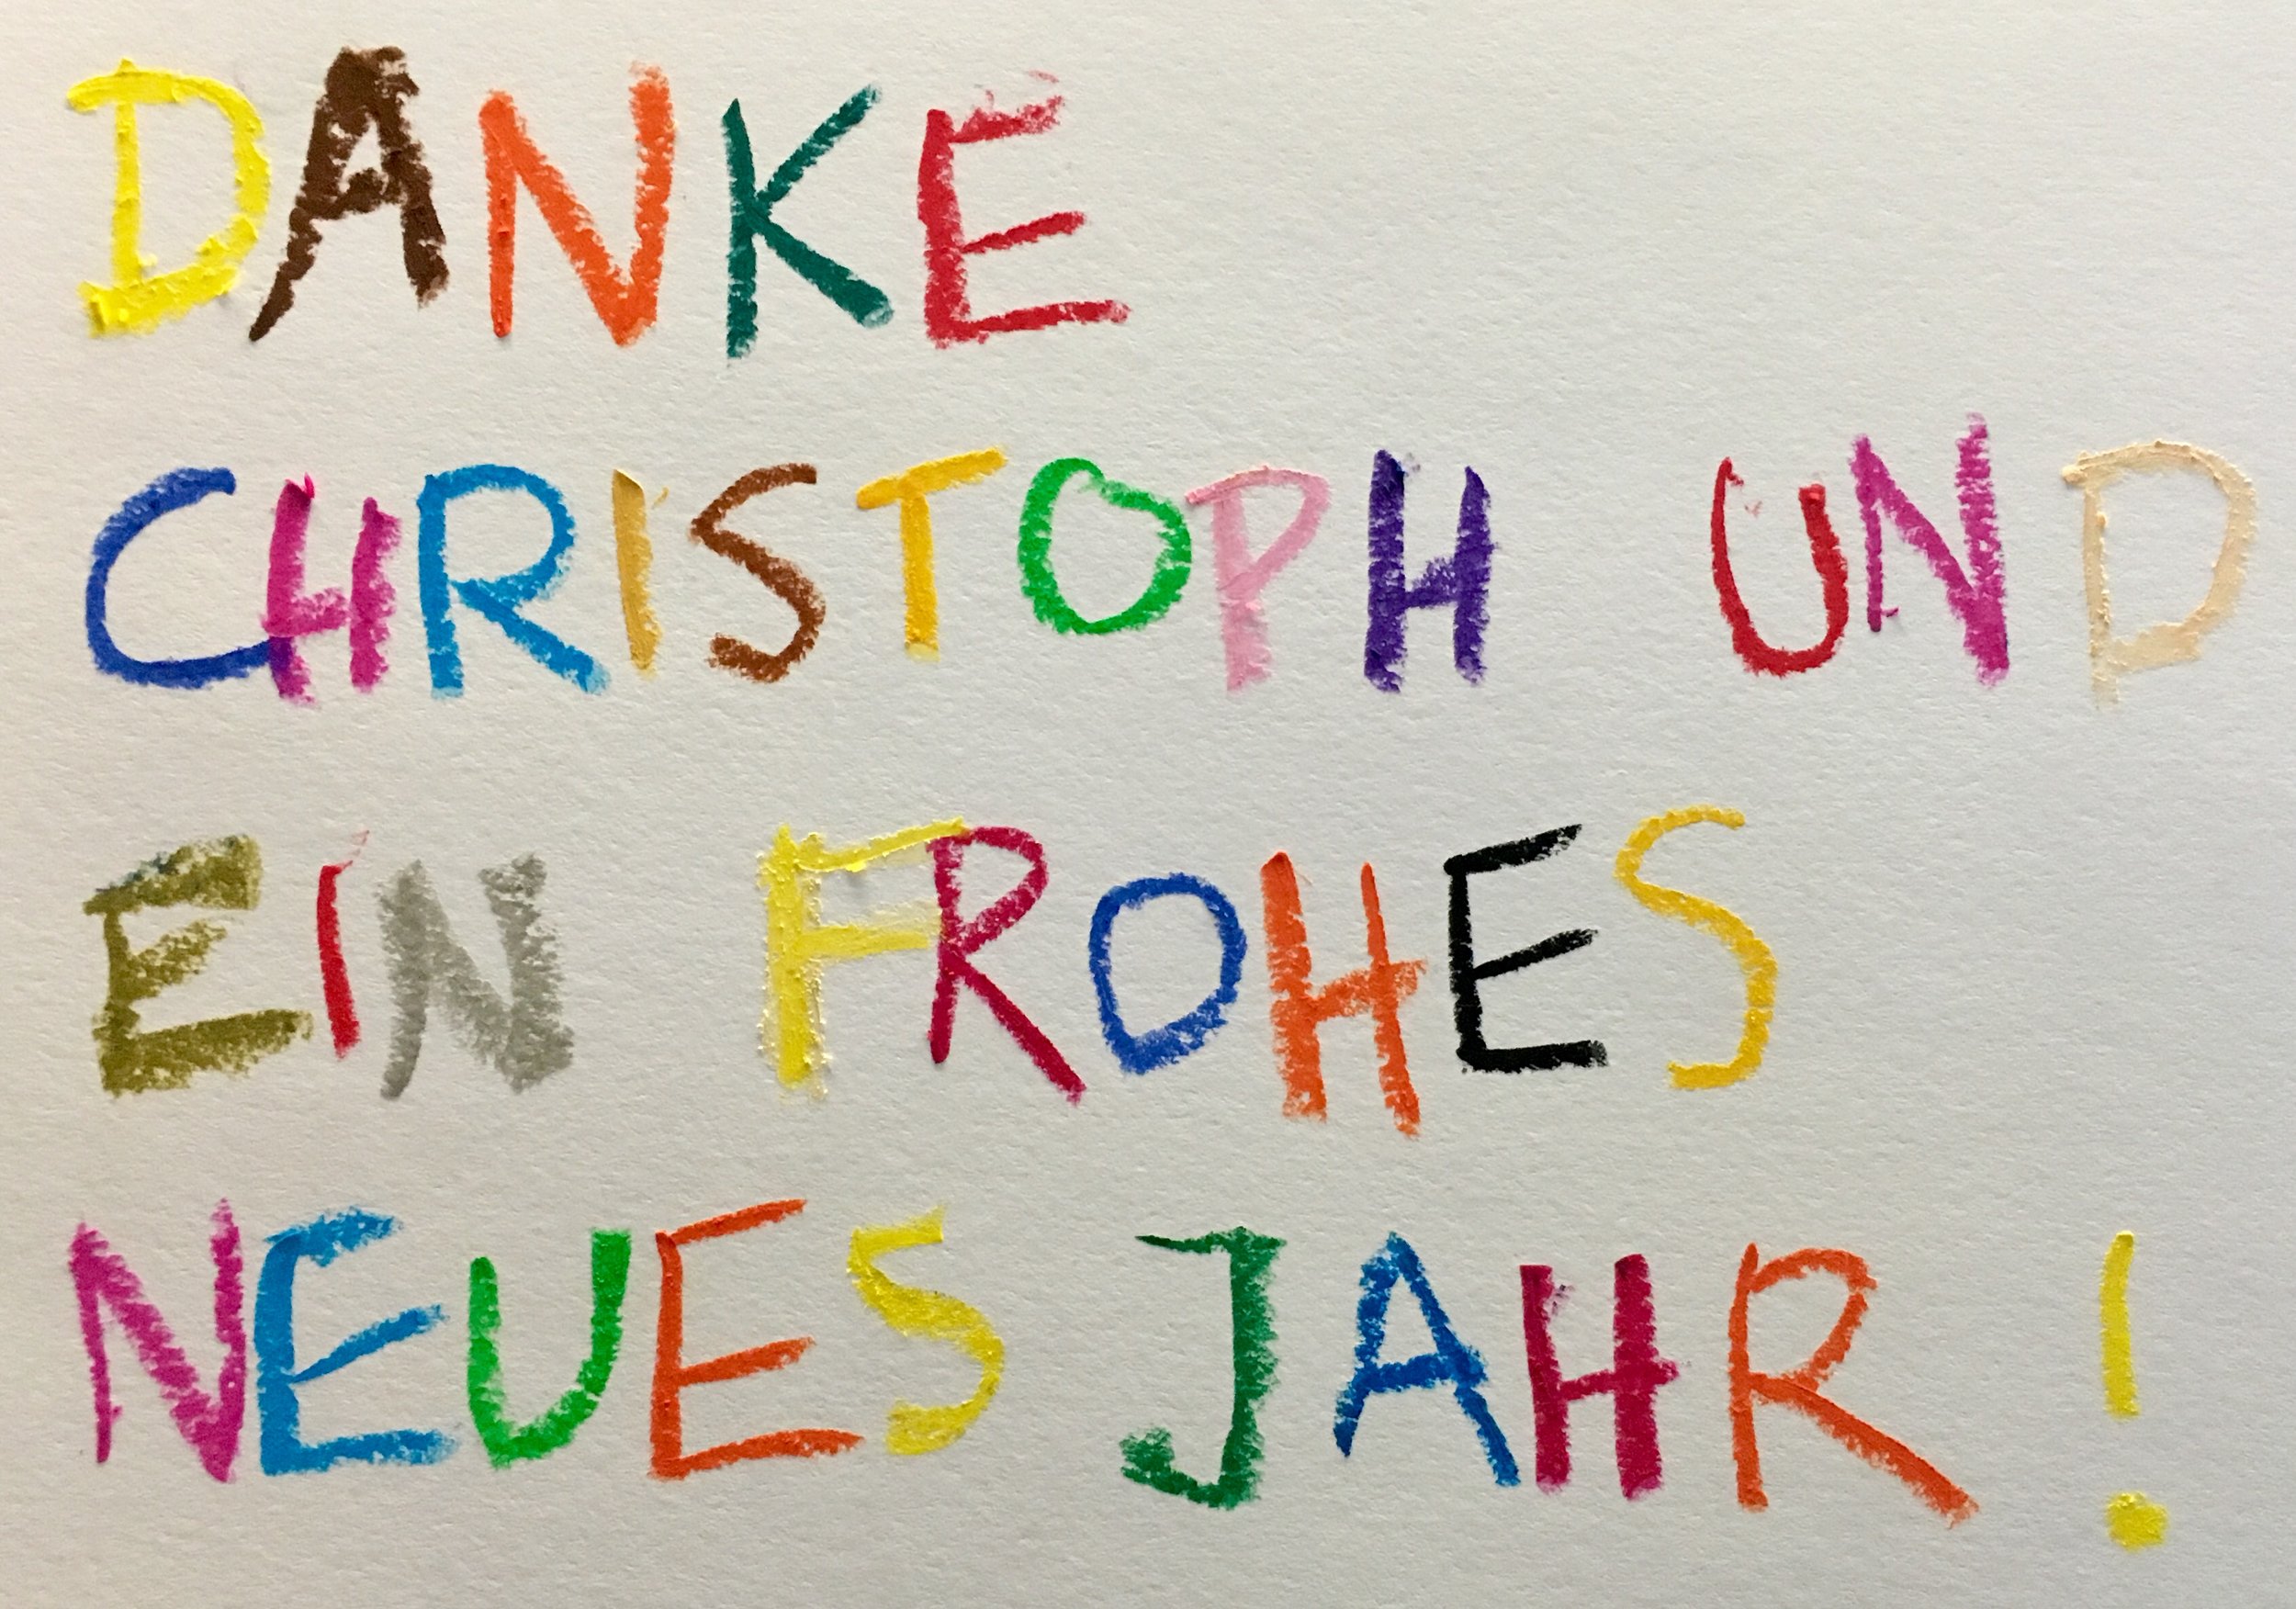 DANKE
CHRISTOPH UND
EIN FROHES
NEUES JAHR !